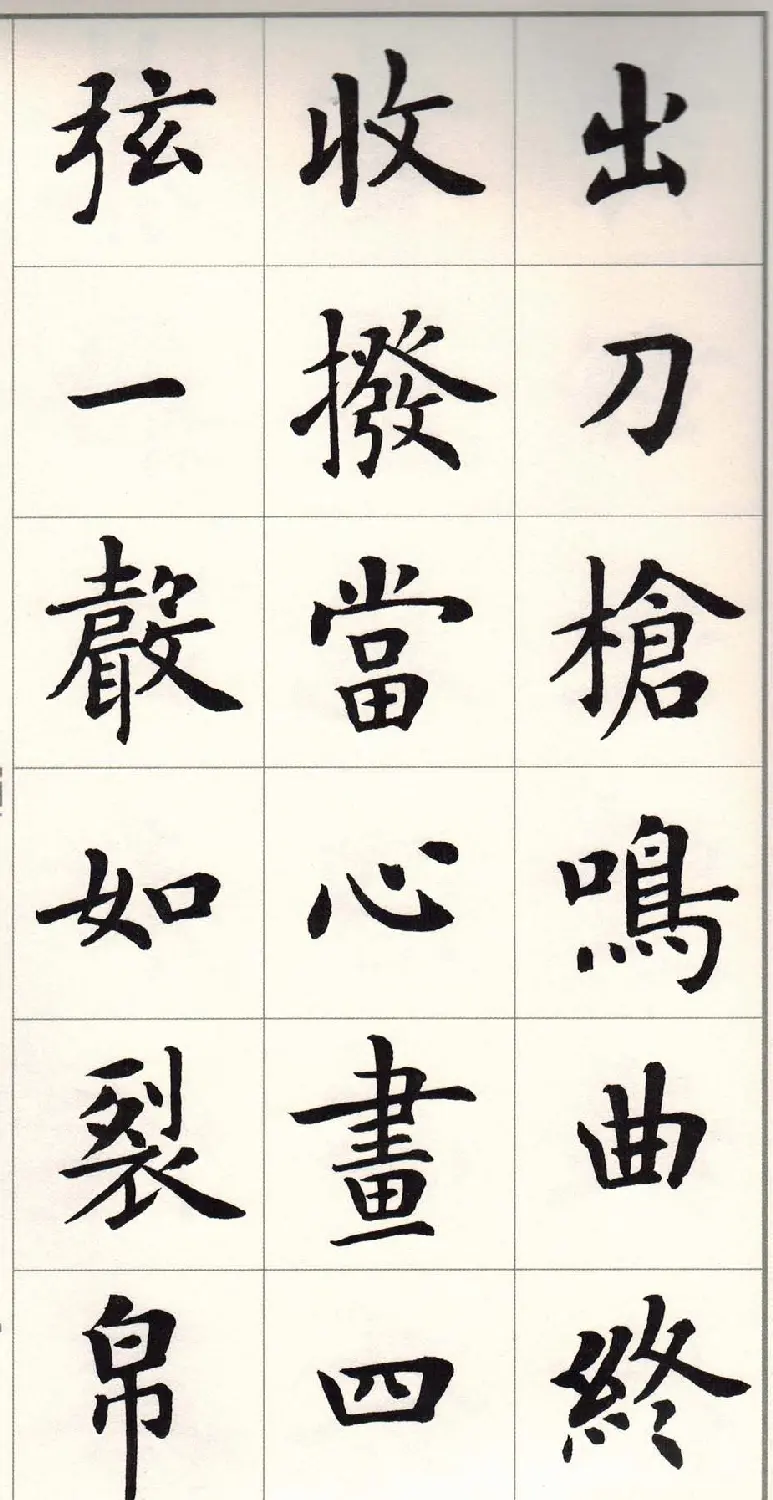 出刀槍鳴曲終
收撥當心畫四
弦一聲如裂帛